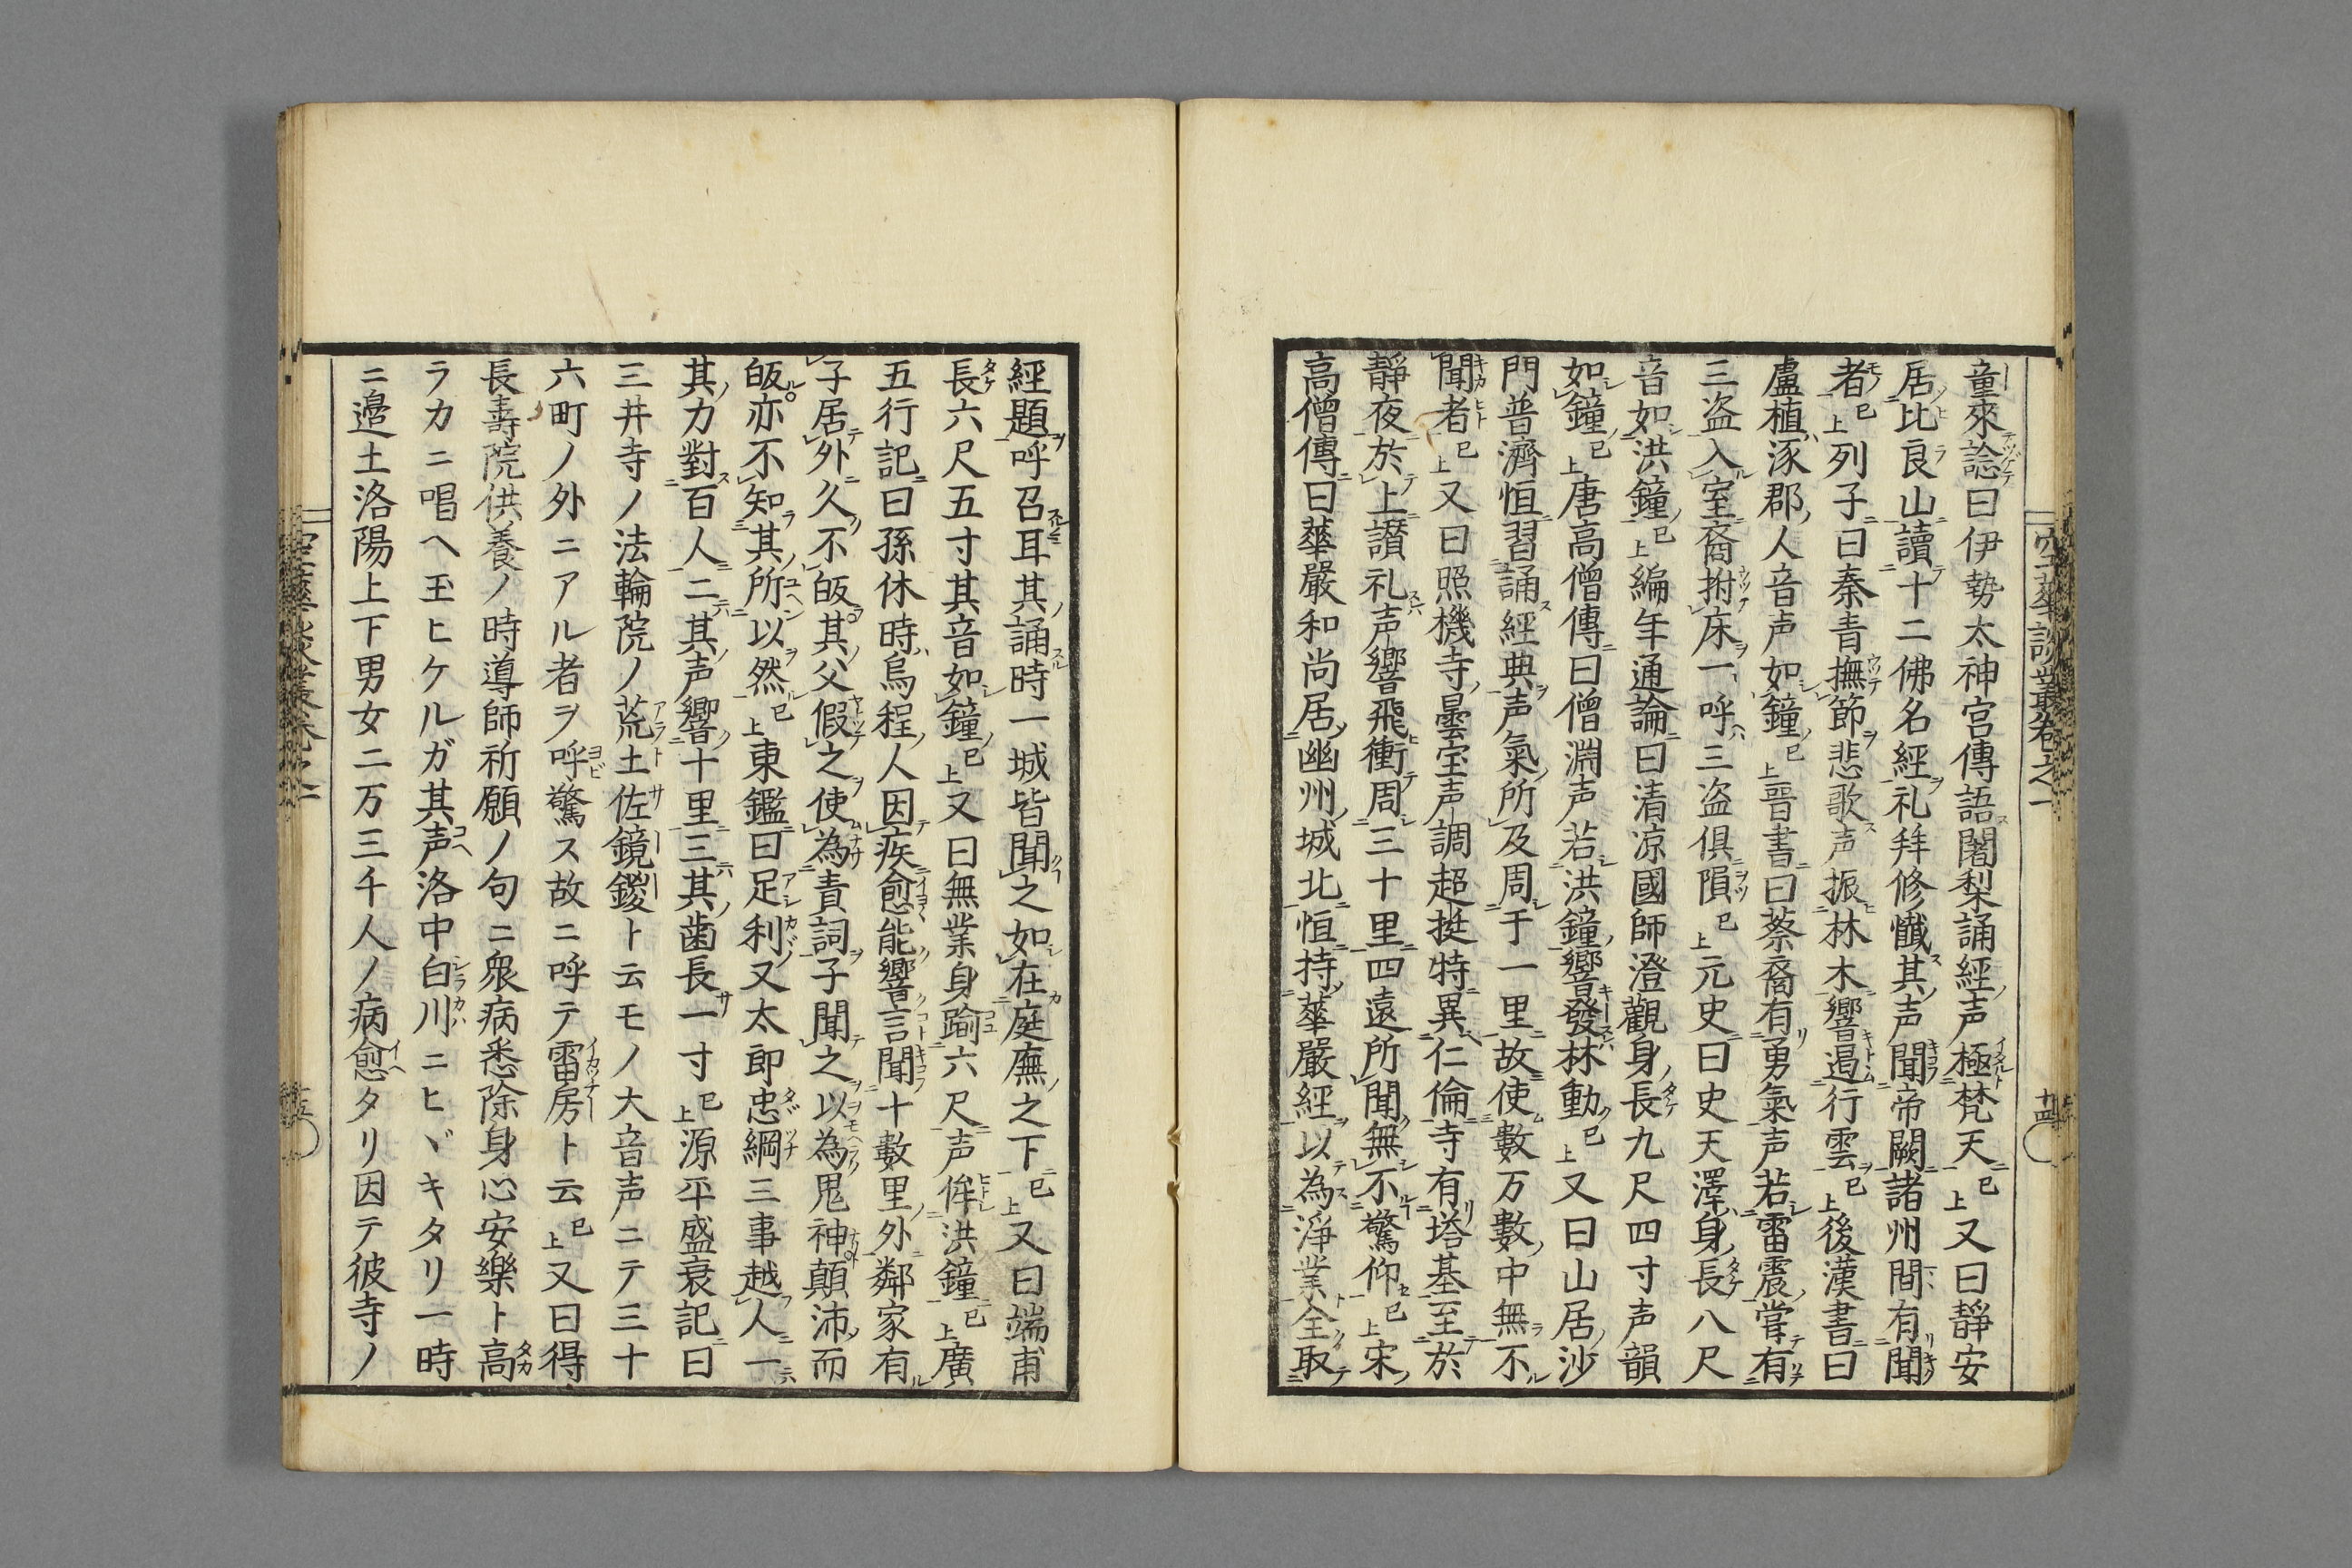 童來諗曰伊勢太神宮傳語闍梨誦經声極梵天已上又曰靜安
居比良山讀十二佛名經礼拜修懺其声聞帝闕諸州間有聞
者已上列子曰秦青撫節悲歌声振林木響遏行雲已上後漢書曰
盧植涿郡人音声如鐘已上晉書曰蔡裔有勇氣声若雷震甞有
三盗入室裔拊床一呼三盗俱隕已上元史曰史天澤身長八尺
音如洪鐘已上編年通論曰清凉國師澄觀身長九尺四寸声韻
如鐘已上唐高僧傳曰僧淵声若洪鐘響發林動已上又曰山居沙
門普濟恒習誦經典声氣所及周于一里故使數万數中無不
聞者已上又曰照機寺曇宝声調超挺特異仁倫寺有塔基至於
靜夜於上讃礼声響飛衝周三十里四遠所聞無不驚仰已上宋
高僧傳曰華嚴和尚居幽州城北恒持華嚴經以為淨業全取
空華談叢卷之一
十四
經題呼召耳其誦時一城皆聞之如在庭廡之下已上又曰端甫
長六尺五寸其音如鐘已上又曰無業身踰六尺声侔洪鐘已上廣
五行記曰孫休時烏程人因疾愈能響言聞十數里外鄰家有
子居外久不皈其父假之使為責詞子聞之以為鬼神顛沛而
皈亦不知其所以然已上東鑑曰足利又太郎忠綱三事越人一
其力對百人二其声響十里三其歯長一寸已上源平盛衰記曰
三井寺ノ法輪院ノ荒土佐鏡鑁ト云モノ大音声ニテ三十
六町ノ外ニアル者ヲ呼驚ス故ニ呼テ雷房ト云已上又曰得
長壽院供養ノ時導師祈願ノ句ニ衆病悉除身心安樂ト高
ラカニ唱ヘ玉ヒケルガ其声洛中白川ニヒヾキタリ一時
ニ邉土洛陽上下男女二万三千人ノ病愈タリ因テ彼寺ノ